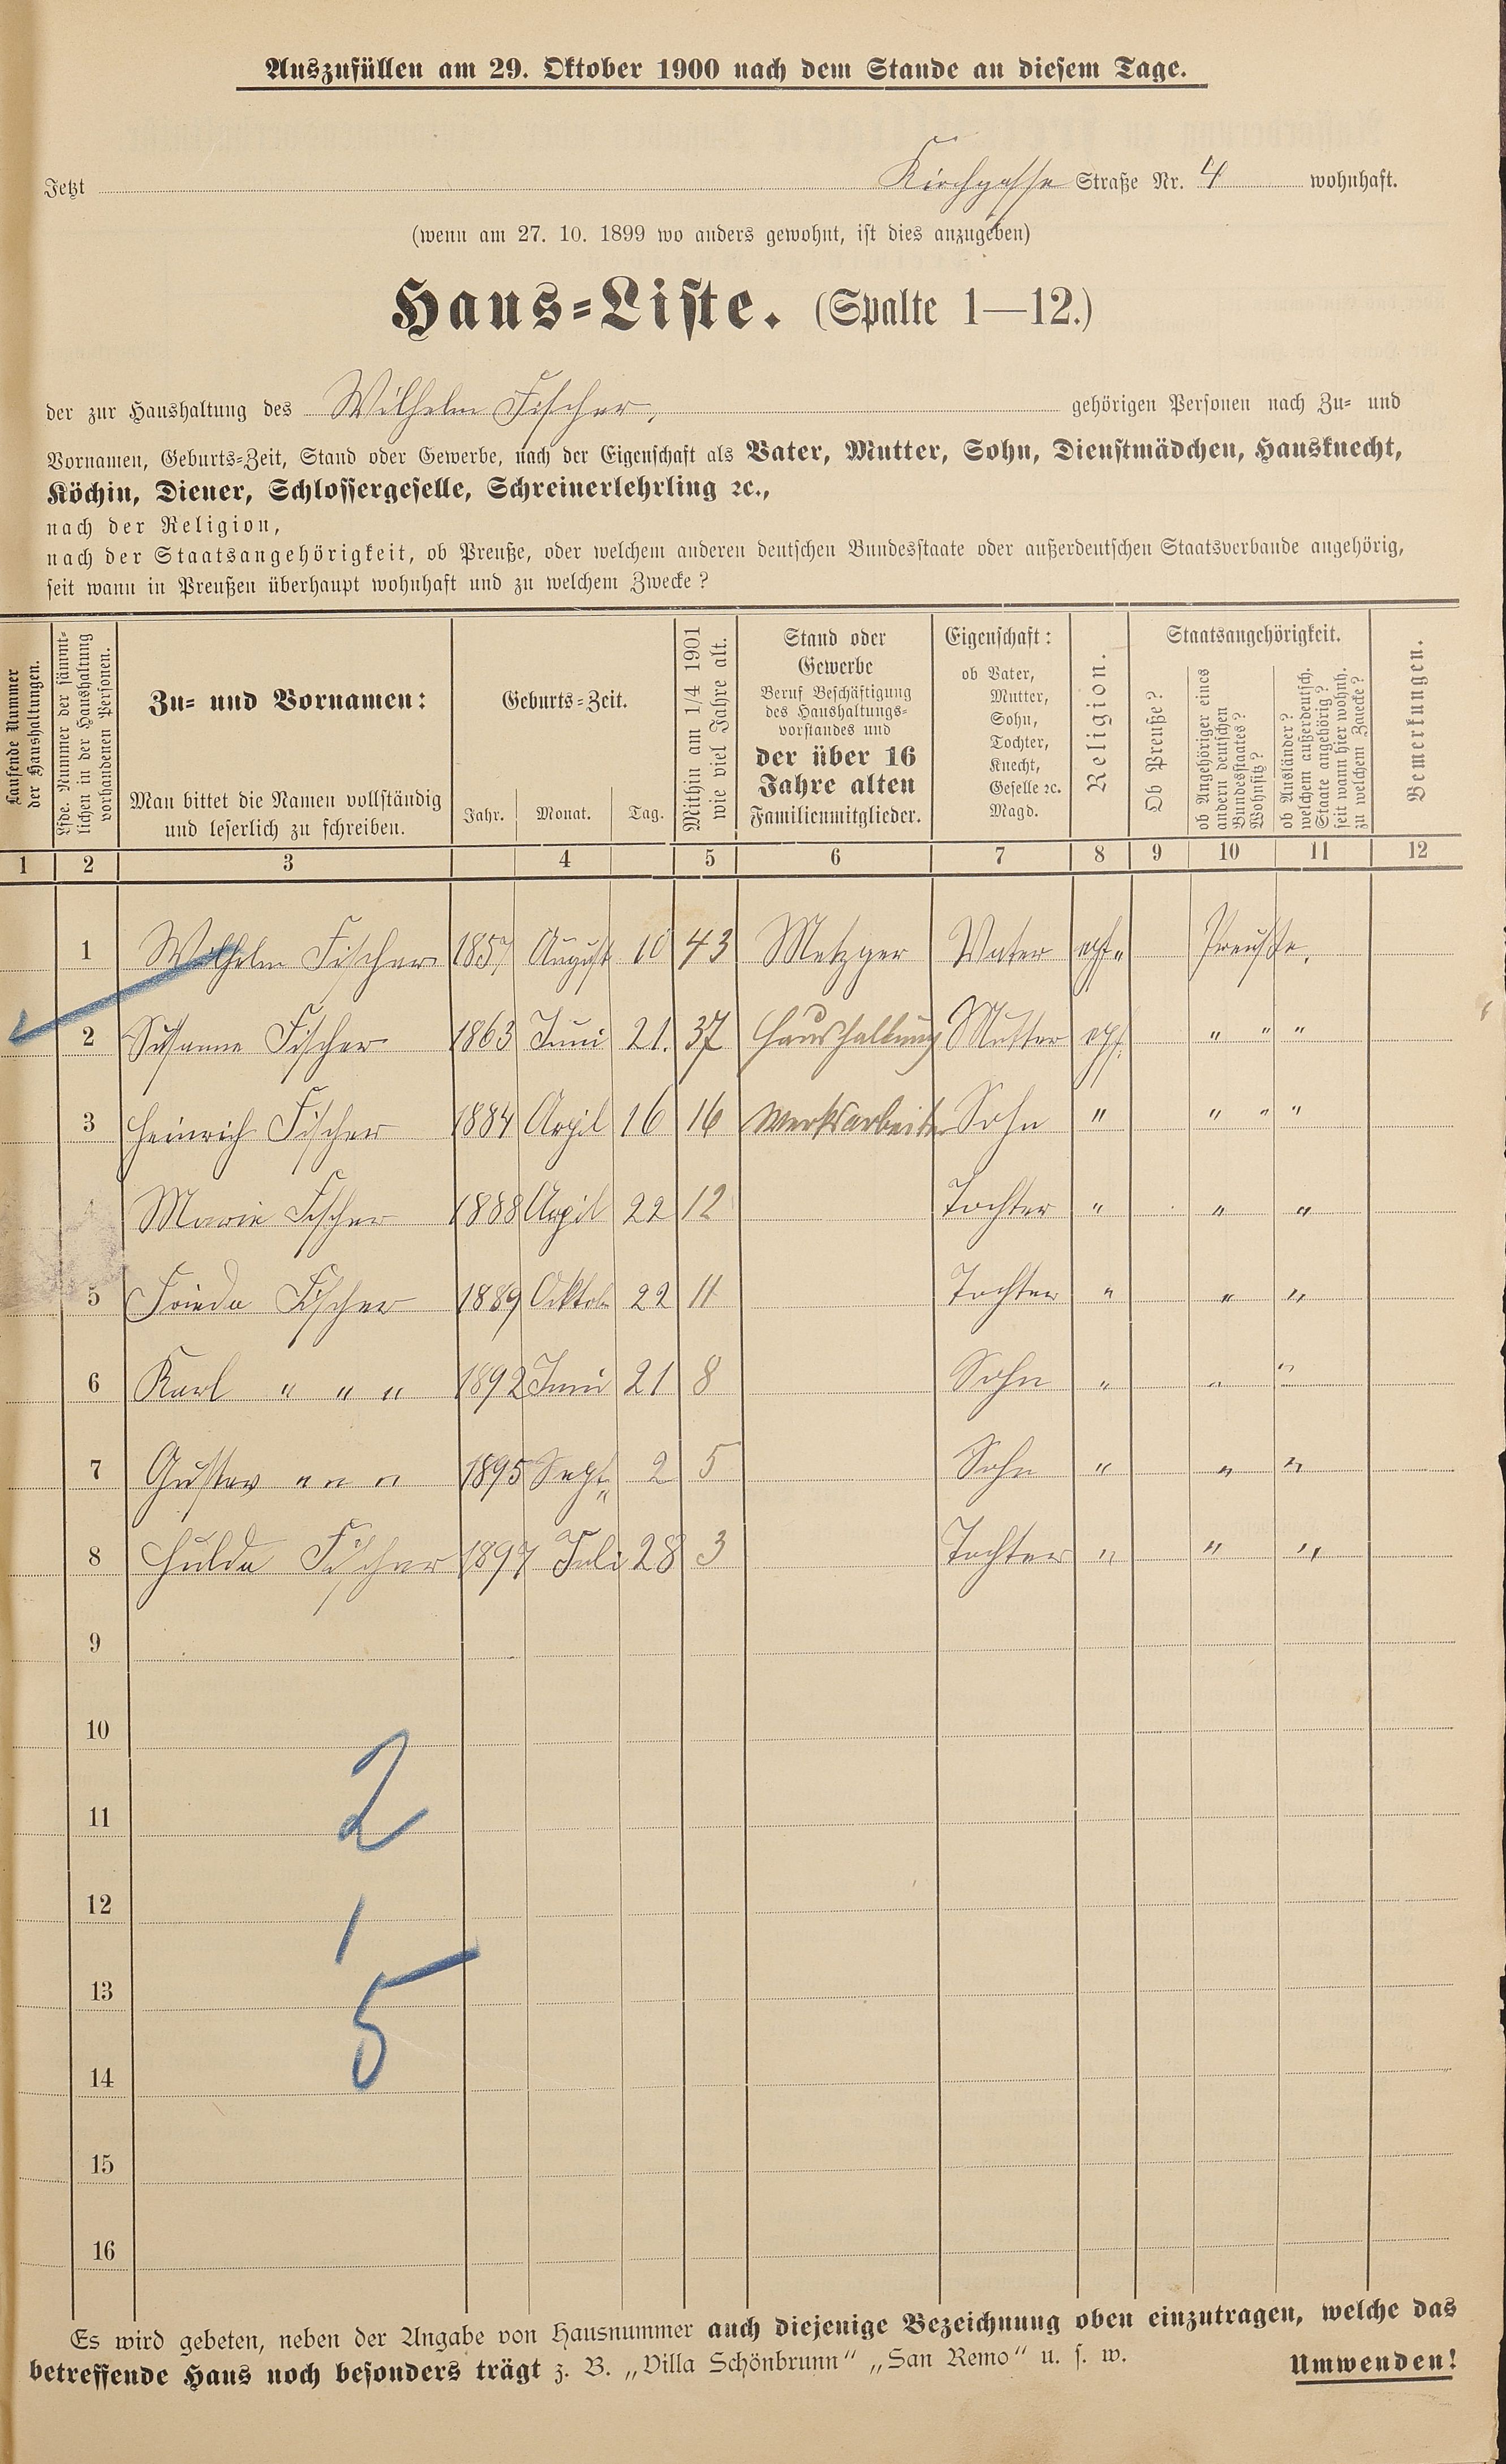 Auszufüllen am 29. Oktober 1900 nach dem Stande an diesem Tage.
Jetzt Kirchgasse Straße Nr. 4 wohnhaft.
(wenn am 27. 10. 1899 wo anders gewohnt, ist dies anzugeben)
Haus-Liste. (Spalte 1—12.)
der zur Haushaltung des Wilhelm Fischer, gehörigen Personen nach Zu- und
Vornamen, Geburts-Zeit, Stand oder Gewerbe, nach der Eigenschaft als Vater, Mutter, Sohn, Dienstmädchen, Hausknecht,
Köchin, Diener, Schlossergeselle, Schreinerlehrling ꝛc.,
nach der Religion,
nach der Staatsangehörigkeit, ob Preuße, oder welchem anderen deutschen Bundesstaate oder außerdeutschen Staatsverbande angehörig,
seit wann in Preußen überhaupt wohnhaft und zu welchem Zwecke?
Laufende Nummer
der Haushaltungen.
Lfde. Nummer der sämmt-
lichen in der Haushaltung
vorhandenen Personen.
Zu- und Vornamen:
Man bittet die Namen vollständig
und leserlich zu schreiben.
Geburts-Zeit.
Jahr. Monat. Tag.
Mithin am 1/4 1901
wie viel Jahre alt.
Stand oder
Gewerbe
Beruf Beschäftigung
des Haushaltungs-
vorstandes und
der über 16
Jahre alten
Familienmitglieder.
Eigenschaft:
ob Vater,
Mutter,
Sohn,
Tochter,
Knecht,
Geselle ꝛc.
Magd.
Religion.
Staatsangehörigkeit.
Ob Preuße?
ob Angehöriger eines
andern deutschen
Bundesstaates?
Wohnsitz?
ob Ausländer?
welchem außerdeutsch.
Staate angehörig?
seit wann hier wohnh.
zu welchem Zwecke?
Bemerkungen.
1 2 3 4 5 6 7 8 9 10 11 12
1 Wilhelm Fischer 1857 August 10 43 Metzger Vater Preuße.
2 Susanne Fischer 1863 Juni 21. 37 Haushaltung Mutter " " "
3 Heinrich Fischer 1884 Aepil 16 16 Werksarbeiter Sohn " " " "
Marie Fischer 1888 Aepil 22 12 Tochter " " "
5 Frieda Fischer 1889 Ocktob 22 11 Tochter " " "
6 Karl " " " 1892 Juni 21 8 Sohn " " "
7 Gustav " " " 1895 Sept. 2 5 Sohn " " "
8 Hulda Fischer 1897 Juli 28 3 Tochter " " "
9
10
2
11
12
1
13
5
14
15
16
Es wird gebeten, neben der Angabe von Hausnummer auch diejenige Bezeichnung oben einzutragen, welche das
betreffende Haus noch besonders trägt z. B. „Villa Schönbrunn“ „San Remo“ u. s. w.
Umwenden!